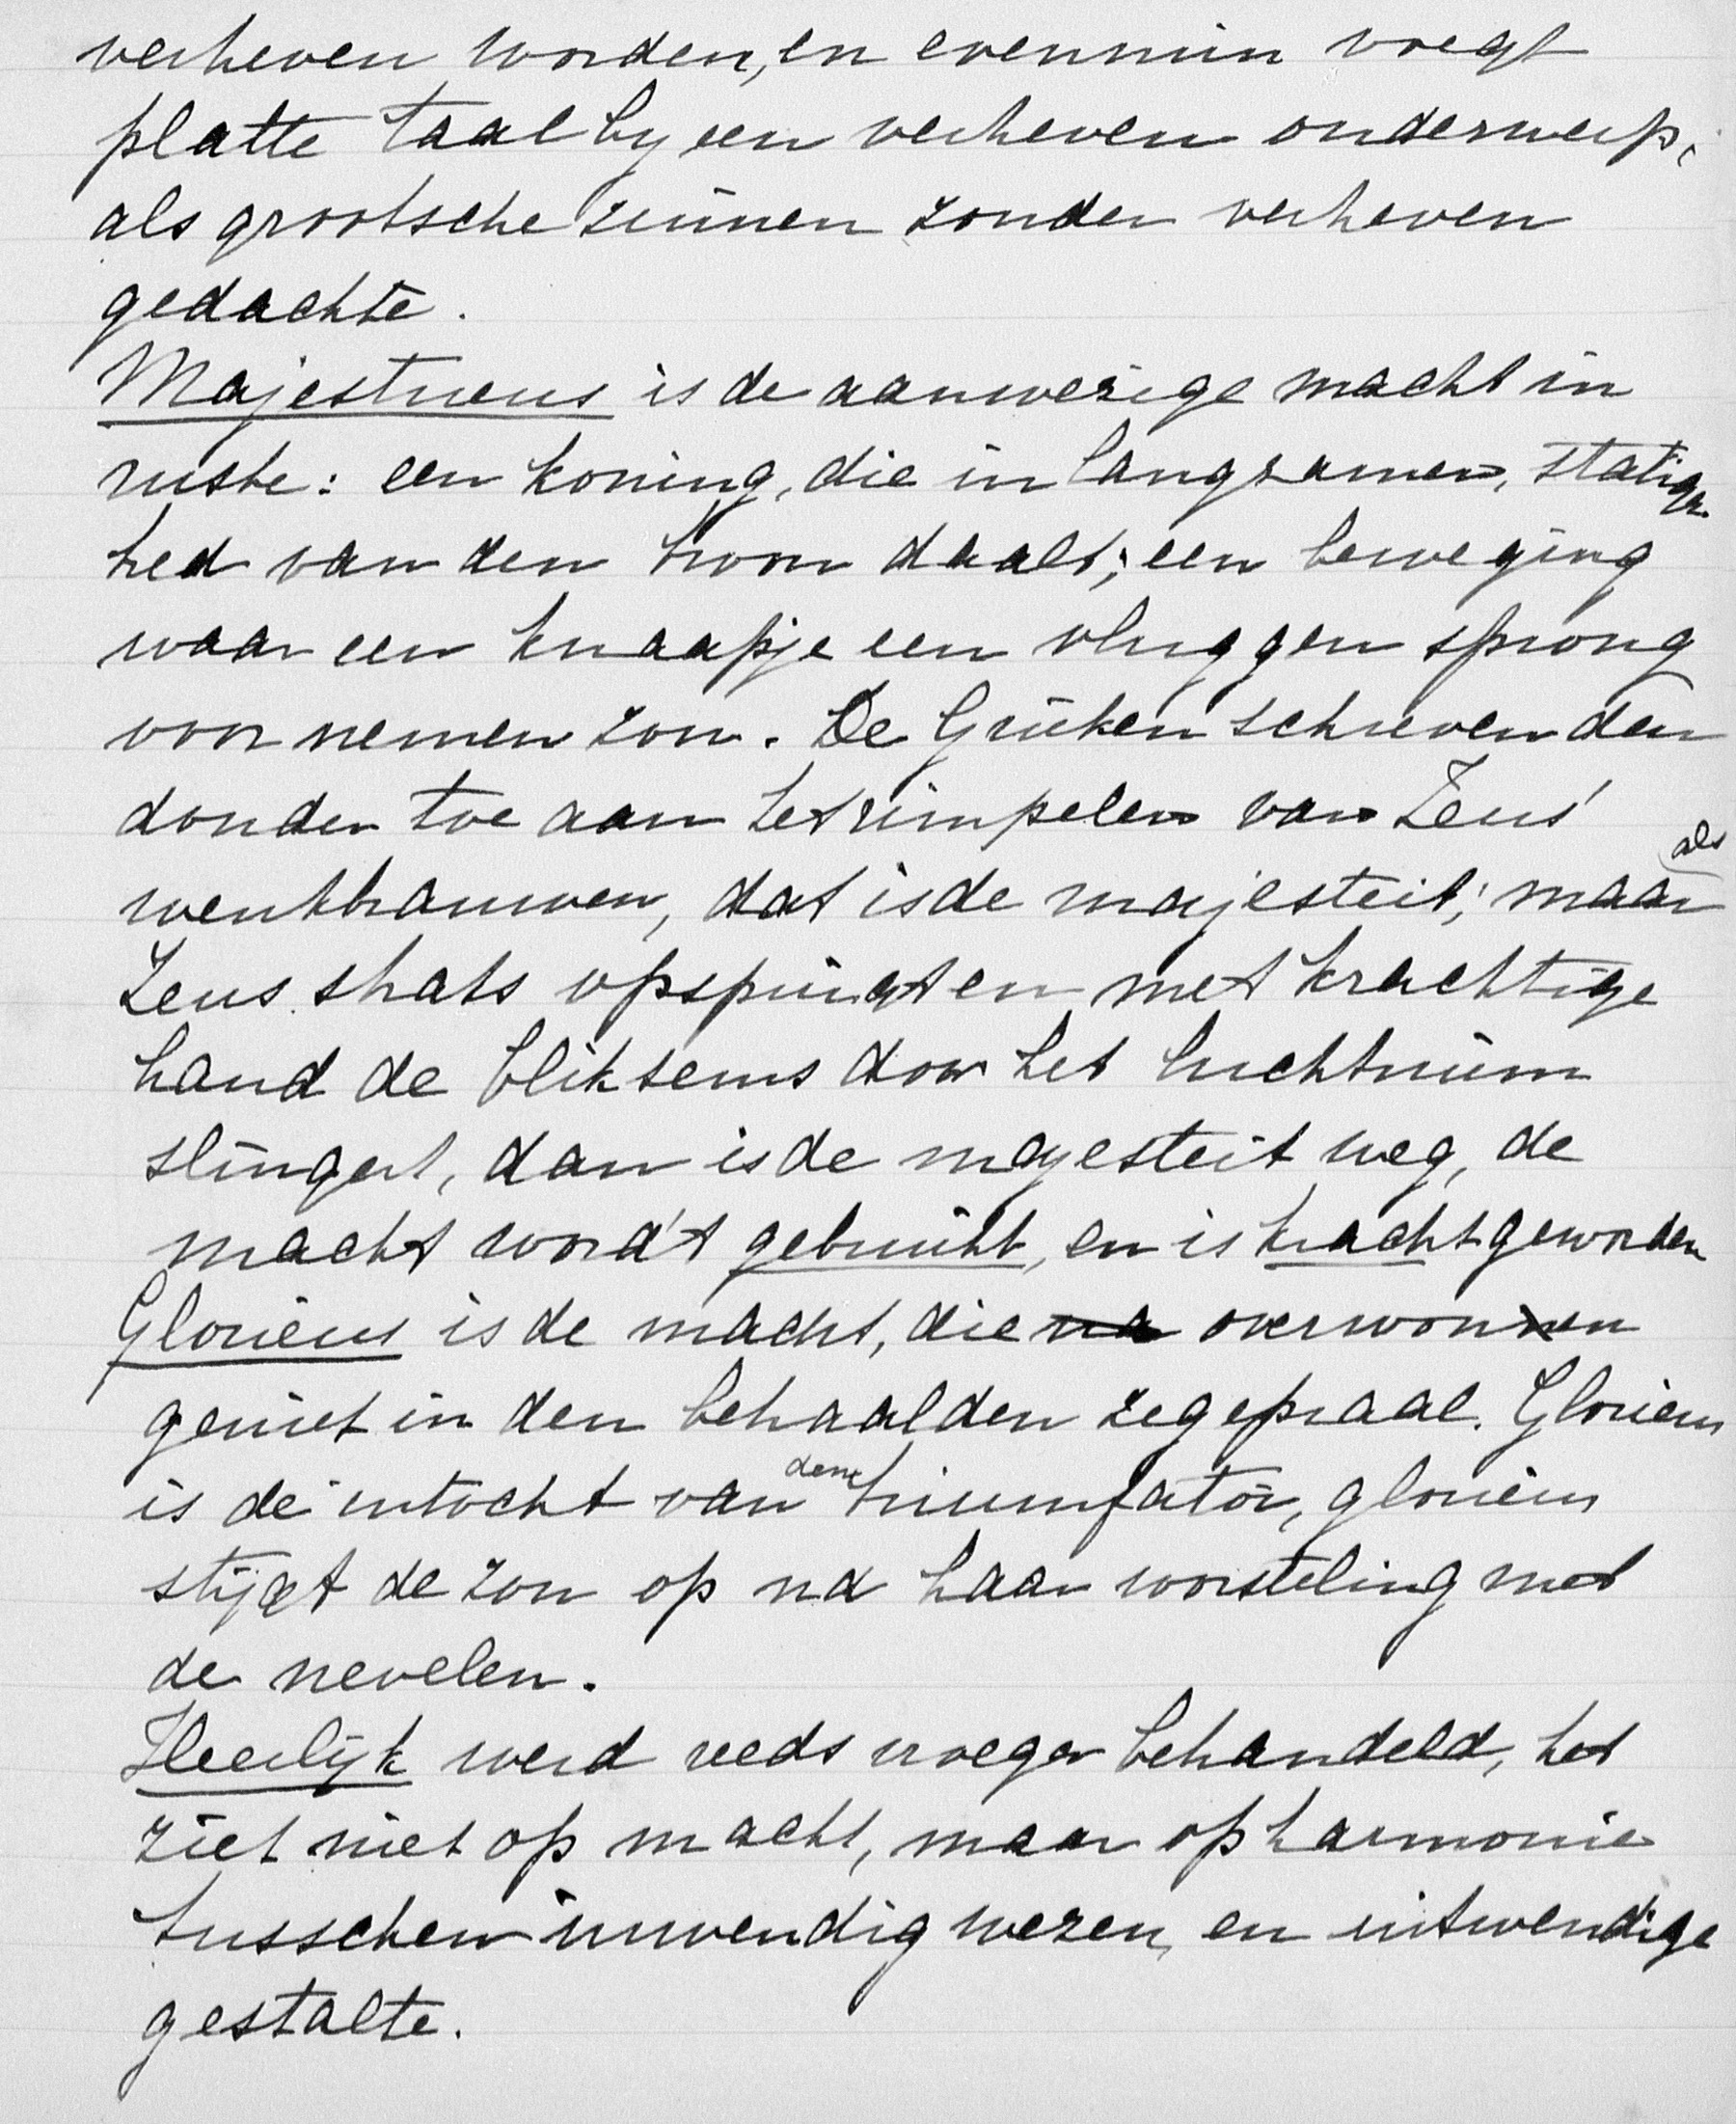 verheven worden, en evenmin voegt
platte taal by een verheven onderwerp,
als grootsche zinnen zonder verheven
gedachte.
Majestueus is de aanwezige macht in
ruste: een koning, die in langzamen, statigen
tred van den troon daalt; een beweging
waar een knaapje een vluggen sprong
voor nemen zou. De Grieken schreven den
donder toe aan het rimpelen van Zeus'
wenkbrauwen, dat is de majesteit; maar als
Zeus straks opspringt en met krachtige
hand de bliksems door het luchtruim
slingert, dan is de majesteit weg, de
macht word't gebruikt, en is kracht geworden
Glorieus is de macht, die na overwonnen
geniet in den behaalden zegepraal. Glorieus
is de intocht van den triumfator, glorieus
stijgt de zon op na haar worsteling met
de nevelen.
Heerlijk werd reeds vroeger behandeld, het
ziet niet op macht, maar op harmonie
tusschen inwendig wezen, en uitwendige
gestalte.